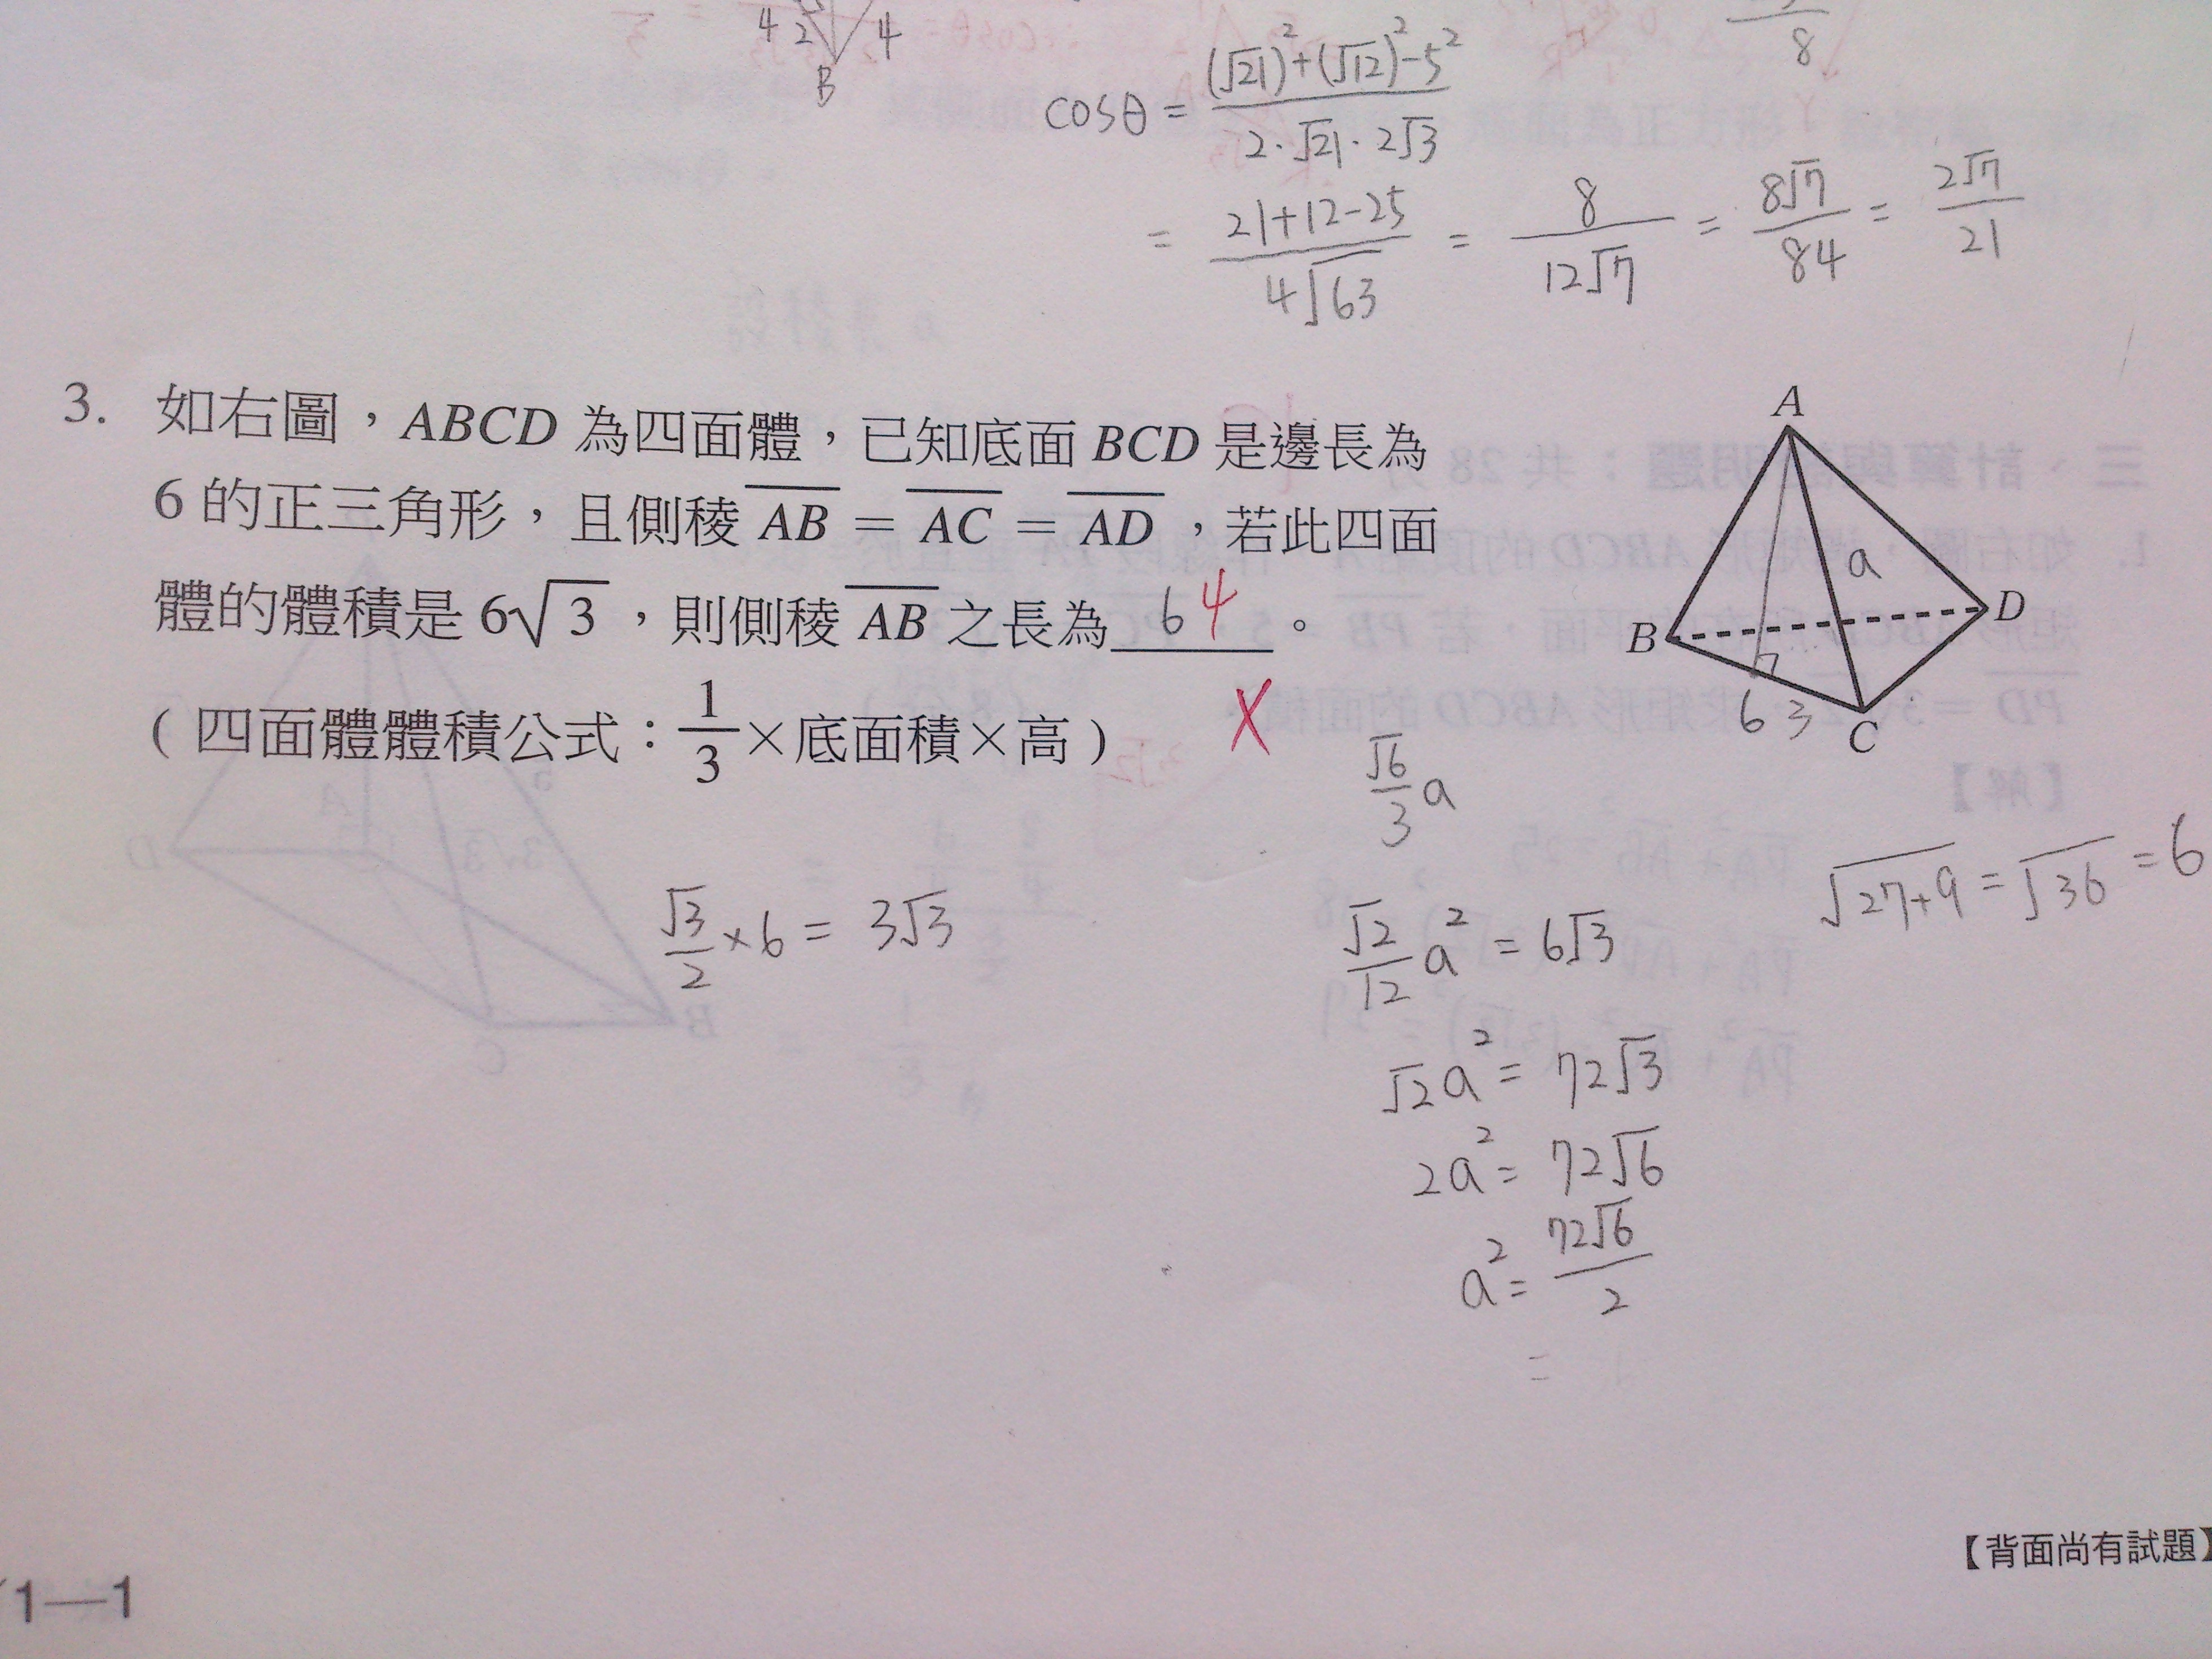 4 2 4
B
8
cosθ = \frac{(√21)²+(√12)²-5²}{2·√21·2√3}
= \frac{21+12-25}{4√63} = \frac{8}{12√7} = \frac{8√7}{84} = \frac{2√7}{21}
3. 如右圖，ABCD 為四面體，已知底面 BCD 是邊長為
6 的正三角形，且側稜 \overline{AB} = \overline{AC} = \overline{AD}，若此四面
體的體積是 6√3，則側稜 \overline{AB} 之長為 6 4 。
(四面體體積公式：\frac{1}{3}×底面積×高)
X
A
a
B
D
6 3
C
\frac{√6}{3}a
√27+9 = √36 = 6
\frac{√3}{2}×6 = 3√3
\frac{√2}{12}a² = 6√3
√2a² = 72√3
2a² = 72√6
a² = \frac{72√6}{2}
=
【背面尚有試題】
1—1